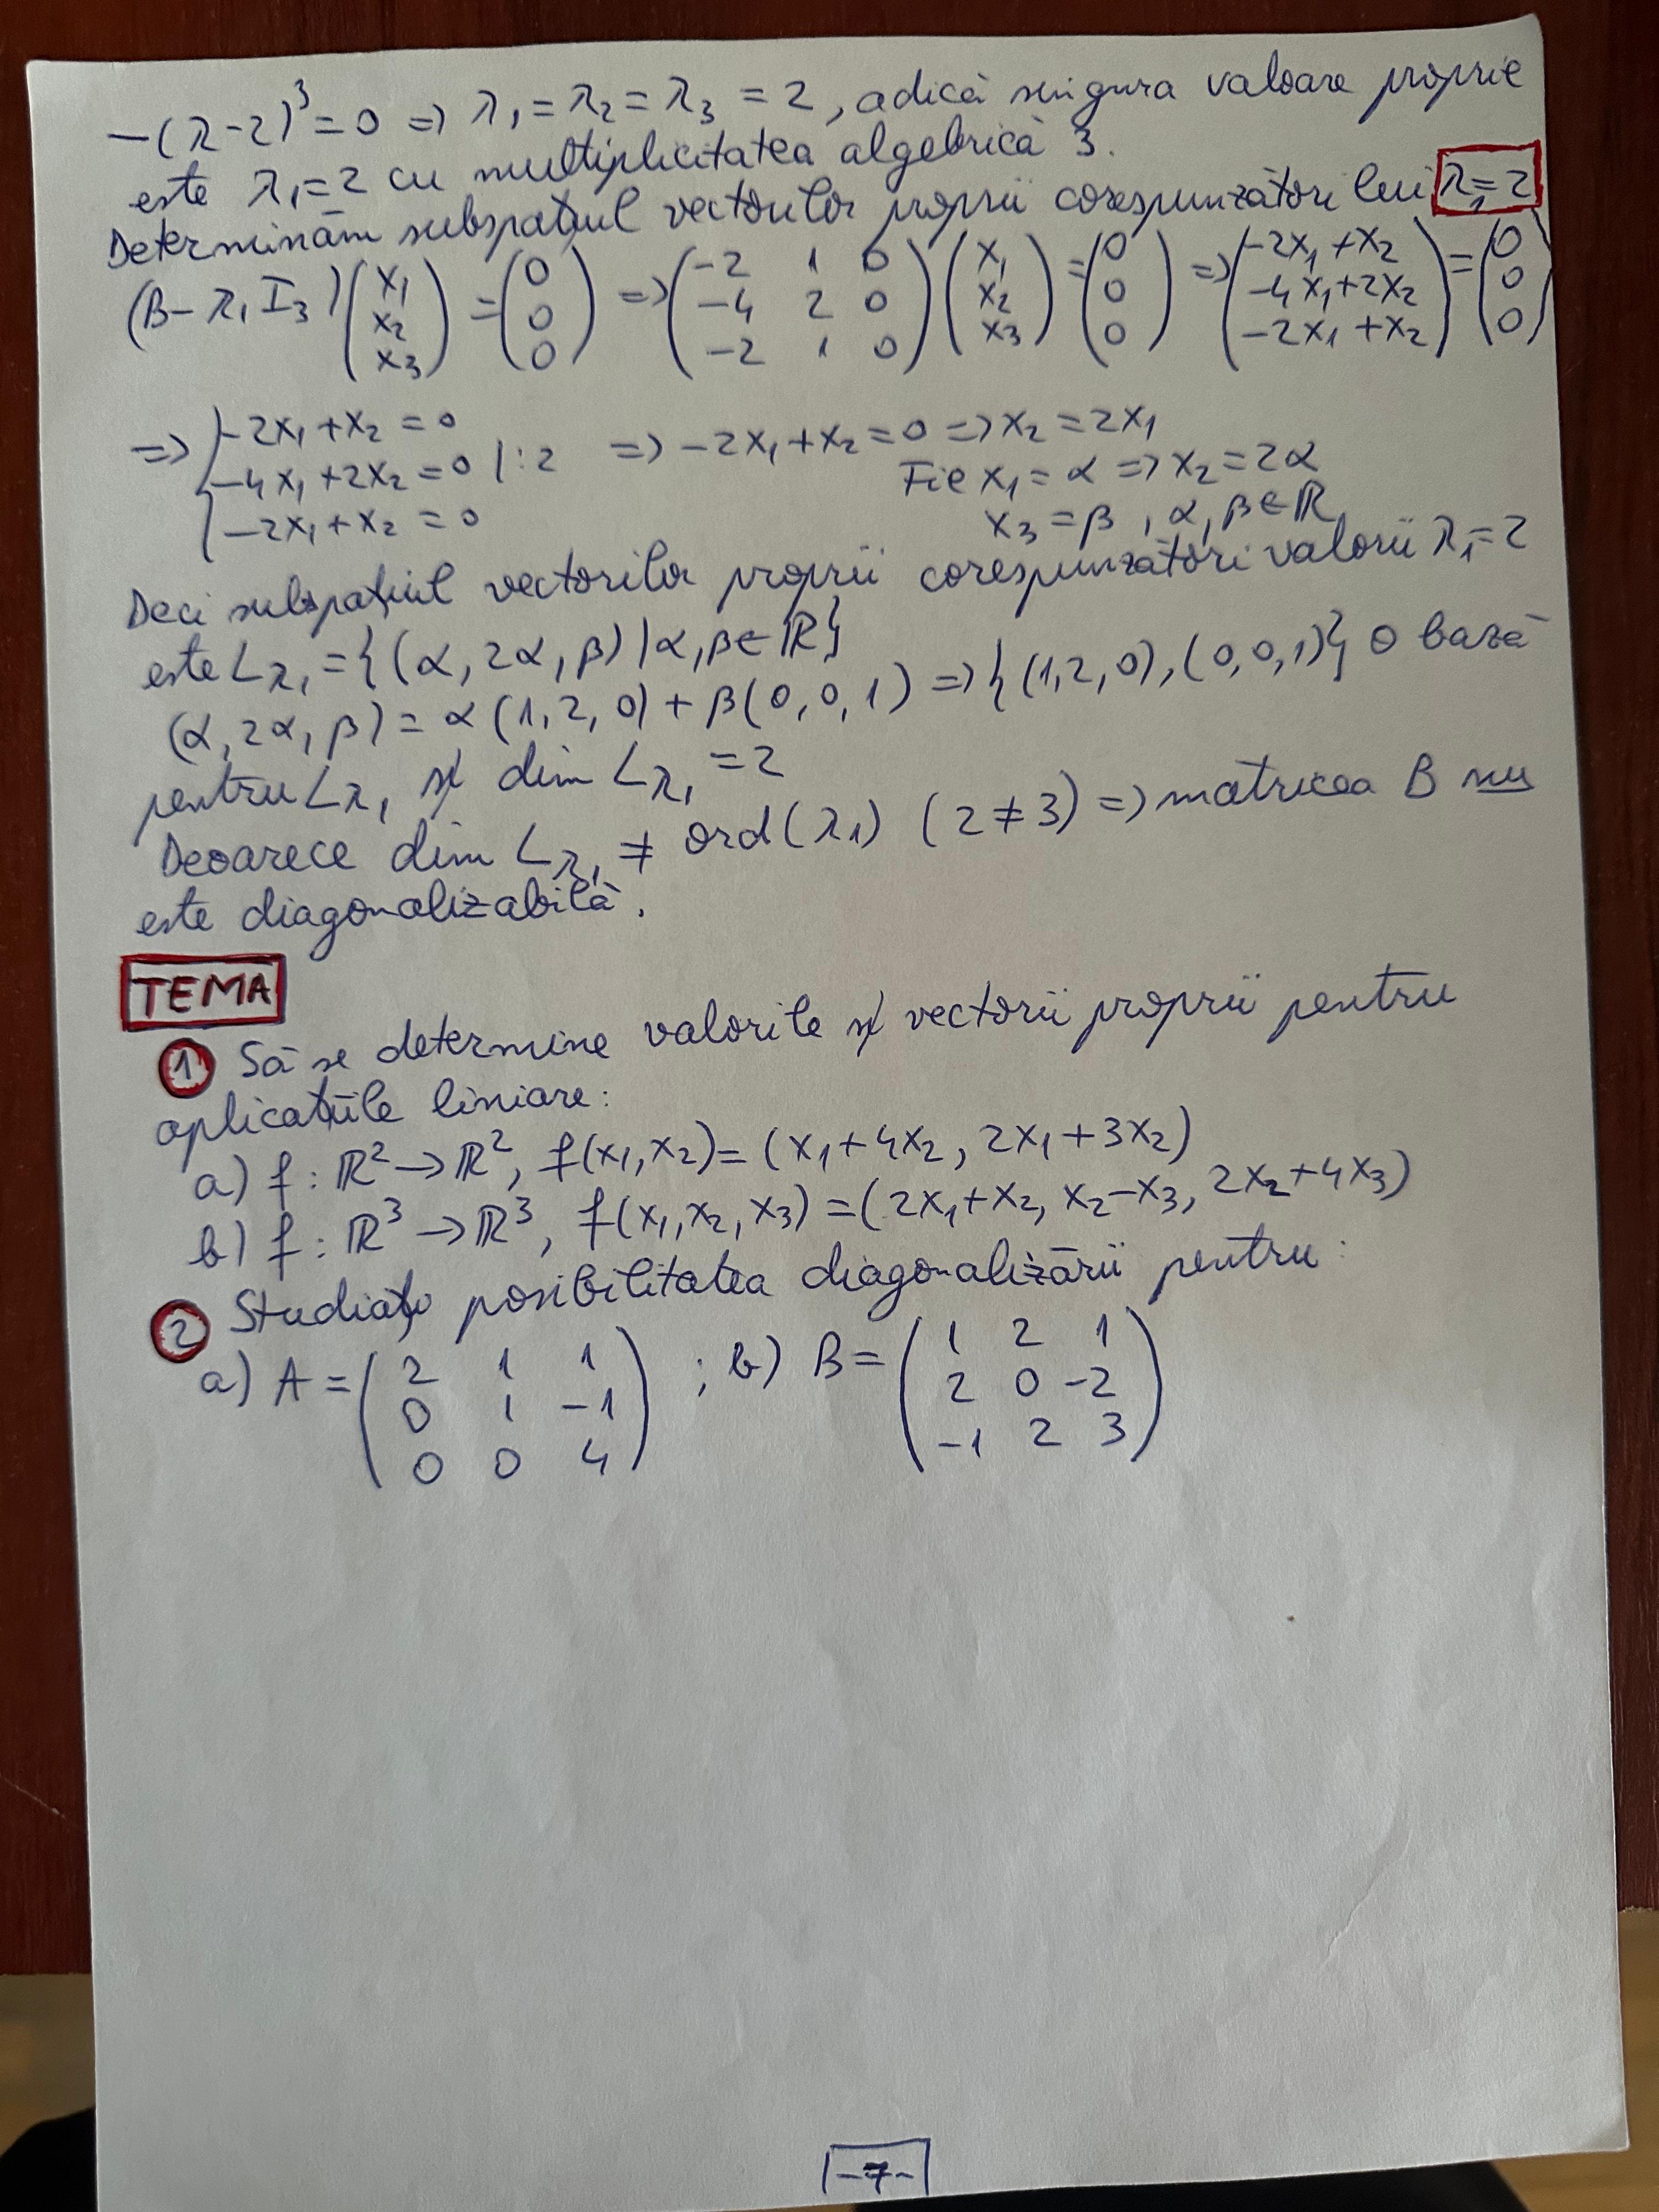 -(λ-2)³=0 => λ₁=λ₂=λ₃ = 2, adică singura valoare proprie
este λ₁=2 cu multiplicitatea algebrică 3.
Determinăm subspațiul vectorilor proprii corespunzători lui λ₁=2
(B-λ₁I₃)(x₁ x₂ x₃)=(0 0 0) => (-2 1 0 -4 2 0 -2 1 0)(x₁ x₂ x₃)=(0 0 0) => (-2x₁+x₂ -4x₁+2x₂ -2x₁+x₂)=(0 0 0)
=> {-2x₁+x₂=0
-4x₁+2x₂=0 |:2 => -2x₁+x₂=0 => x₂=2x₁
-2x₁+x₂=0
Fie x₁=α => x₂=2α
x₃=β, α,β∈ℝ
Deci subspațiul vectorilor proprii corespunzători valorii λ₁=2
este L_λ₁={(α,2α,β)|α,β∈ℝ}
(α,2α,β)=α(1,2,0)+β(0,0,1) => {(1,2,0),(0,0,1)} o bază
pentru L_λ₁ și dim L_λ₁=2
Deoarece dim L_λ₁ ≠ ord(λ1) (2≠3) => matricea B nu
este diagonalizabilă.
TEMA
① Să se determine valorile și vectorii proprii pentru
aplicațiile liniare:
a) f: ℝ²→ℝ², f(x₁,x₂)=(x₁+4x₂, 2x₁+3x₂)
b) f: ℝ³→ℝ³, f(x₁,x₂,x₃)=(2x₁+x₂, x₂-x₃, 2x₂+4x₃)
② Studiați posibilitatea diagonalizării pentru:
a) A=(2 1 1 0 1 -1 0 0 4) ; b) B=(1 2 1 2 0 -2 -1 2 3)
-7-